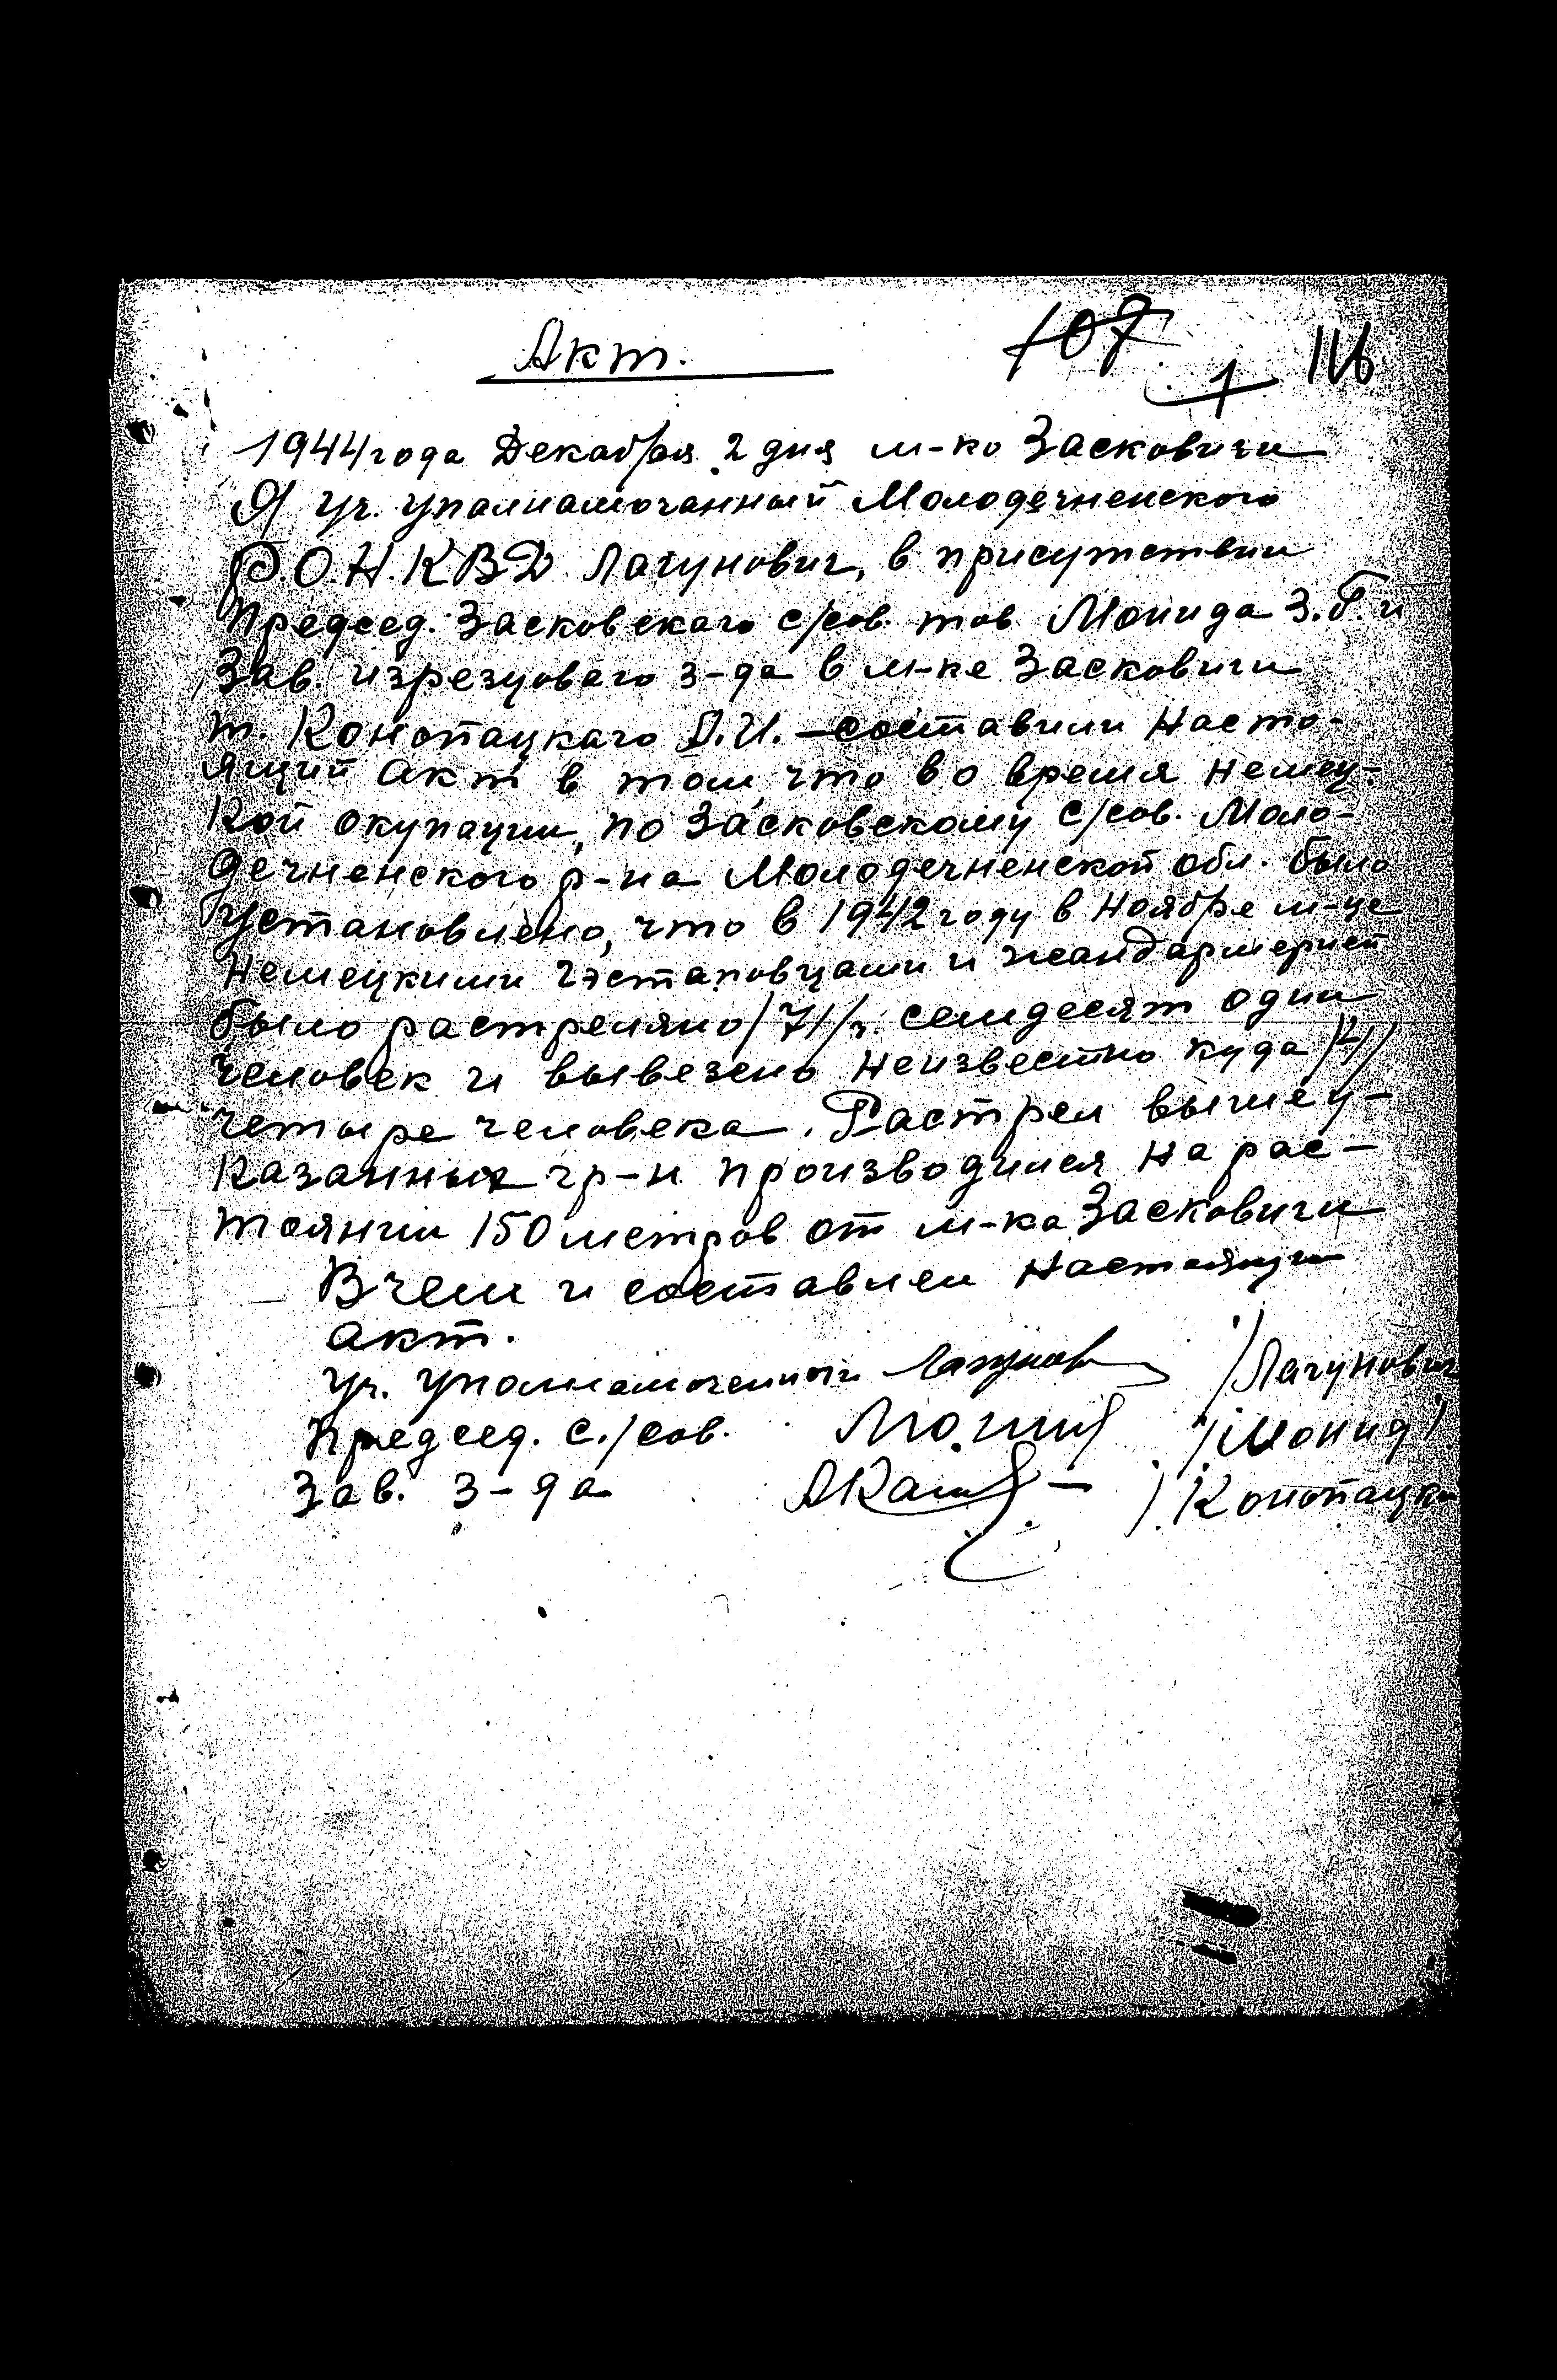 Акт.
107
1 116
1944 года Декабря 2 дня м-ко Засковичи
Я уч. упалнамочанный Молодечненского
Р.О.Н.К.В.Д Лагунович, в присутствии
Председ. Засковскаго с/сов. тов Монида З.Г. и
Зав. изрезцоваго з-да в м-ке Засковичи
т. Конопацкаго А.И. – составили насто-
ящий акт в том, что во время немец-
кой окупации, по Засковскому с/сов. Моло-
дечненского р-на Молодечненской обл. было
установлено, что в 1942 году в Ноябре м-це
немецкими гэстаповцами и жандармерией
было растреляно /71/ч. семдесят один
человек и вывезено неизвестно куда /4/
четыре человека. Растрел вышеу-
казанных гр-н производился на рас-
тоянии 150 метров от м-ка Засковичи
В чем и составлен настоящи
акт.
Уч. уполнамоченный /Лагунович
Председ. с./сов. /Монид/
Зав. з-да /Конопацки